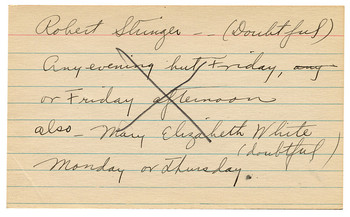 Robert Stringer -- (Doubtful)
Any evening but Friday, any
or Friday afternoon
also - Mary Elizabeth White
(doubtful)
Monday or Thursday.